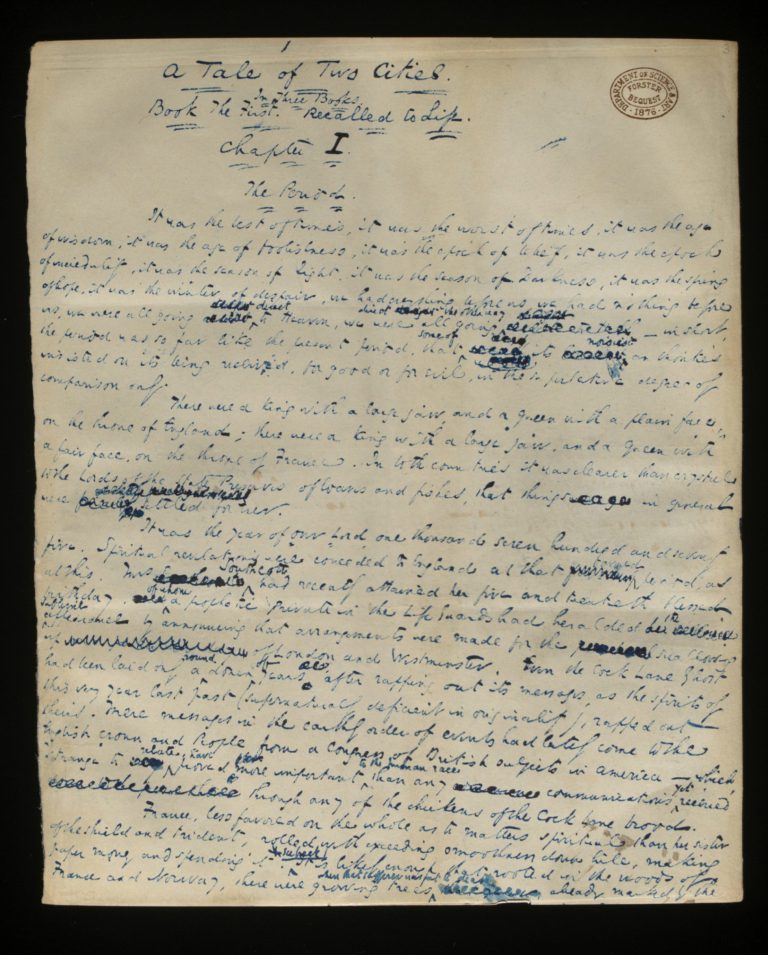 A Tale of Two Cities.
In Three Books.
Book the First. Recalled to Life.
Chapter I.
The Period.
DEPARTMENT OF SCIENCE & ART
FORSTER
BEQUEST
1876
It was the best of times, it was the worst of times, it was the age
of wisdom, it was the age of foolishness, it was the epoch of belief, it was the epoch
of incredulity, it was the season of Light, it was the season of Darkness, it was the spring
of hope, it was the winter of despair, we had everything before us, we had nothing before
us, we were all going direct to Heaven, we were all going direct the other way — in short,
the period was so far like the present period, that some of its noisiest authorities
insisted on its being received, for good or for evil, in the superlative degree of
comparison only.
There were a King with a large jaw and a Queen with a plain face,
on the throne of England; there were a King with a large jaw, and a Queen with
a fair face, on the throne of France. In both countries it was clearer than crystal
to the Lords of the State Preserves of loaves and fishes, that things in general
were settled for ever.
It was the year of our Lord, one thousand seven hundred and seventy
five. Spiritual revelations were conceded to England at that period, as
at this. Mrs Southcott had recently attained her five and twentieth blessed
birthday of whom a prophetic private in the Life Guards had heralded the
sublime appearance by announcing that arrangements were made for the swallowing
up of London and Westminster. Even the Cock Lane Ghost
had been laid only a round dozen of years, after rapping out its messages, as the spirits of
this very year last past (supernaturally deficient in originality) rapped out
theirs. Mere messages in the earthly order of events had lately come to the
English crown and People from a Congress of British subjects in America — which,
strange to relate, have proved more important to the human race than any communications yet received
through any of the chickens of the Cock Lane brood.
France, less favored on the whole as to matters spiritual than her sister
of the shield and trident, rolled with exceeding smoothness down hill, making
paper money and spending it. It is likely enough that rooted in the woods of
France and Norway, there were growing trees, when that sufferer was put to death, already marked by the